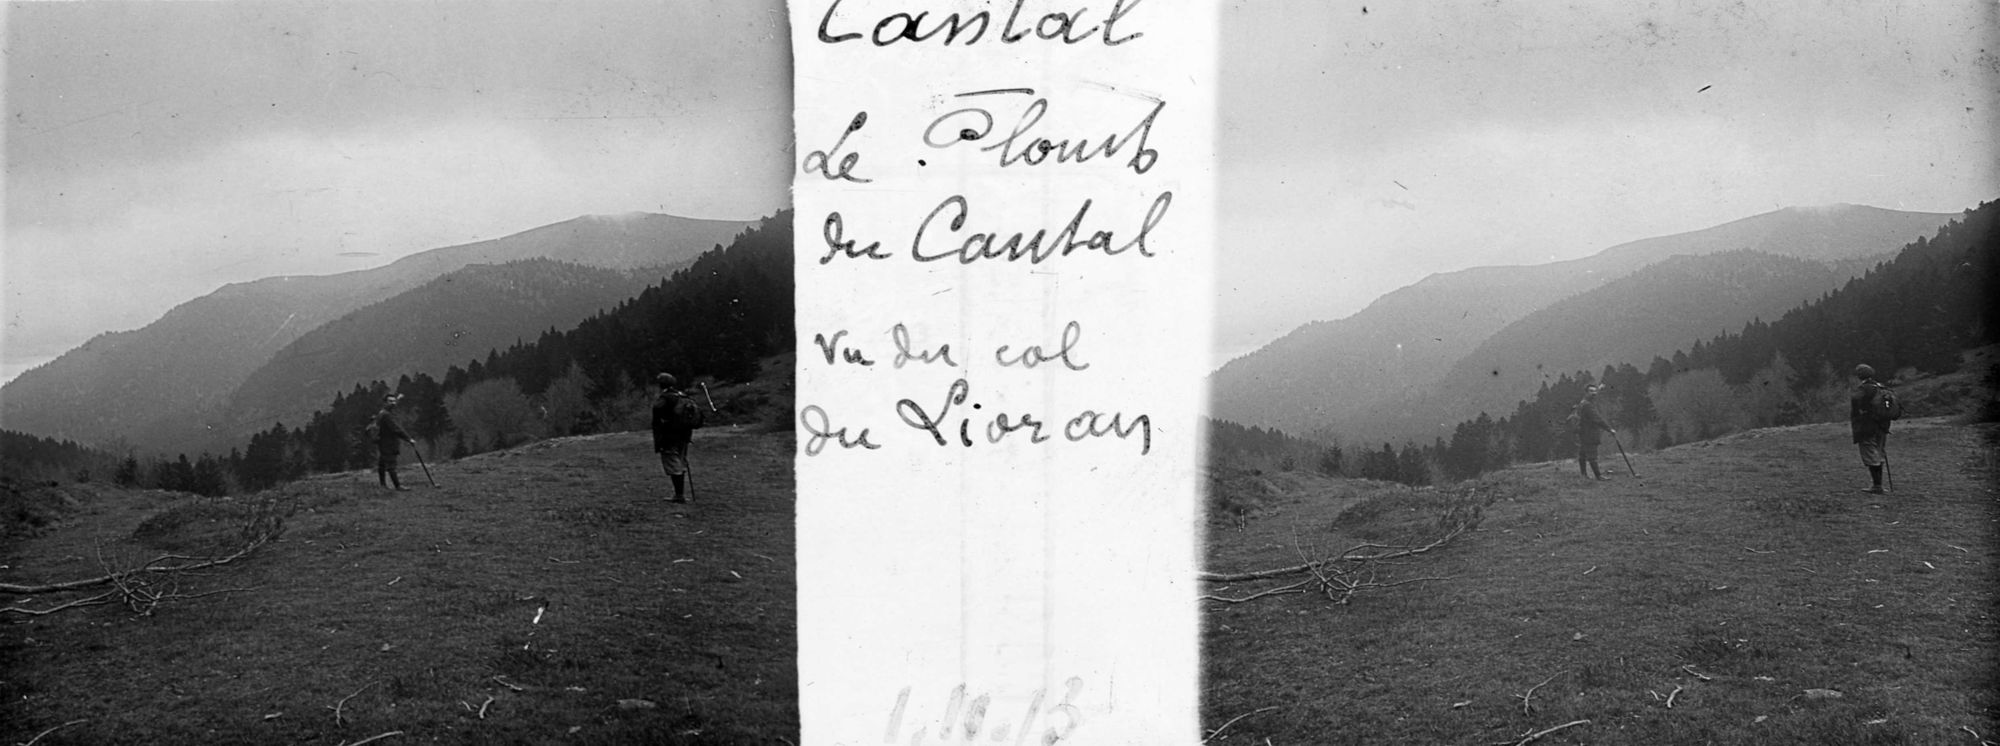 Cantal
Le Plomb
du Cantal
vu du col
du Lioran
1.11.13